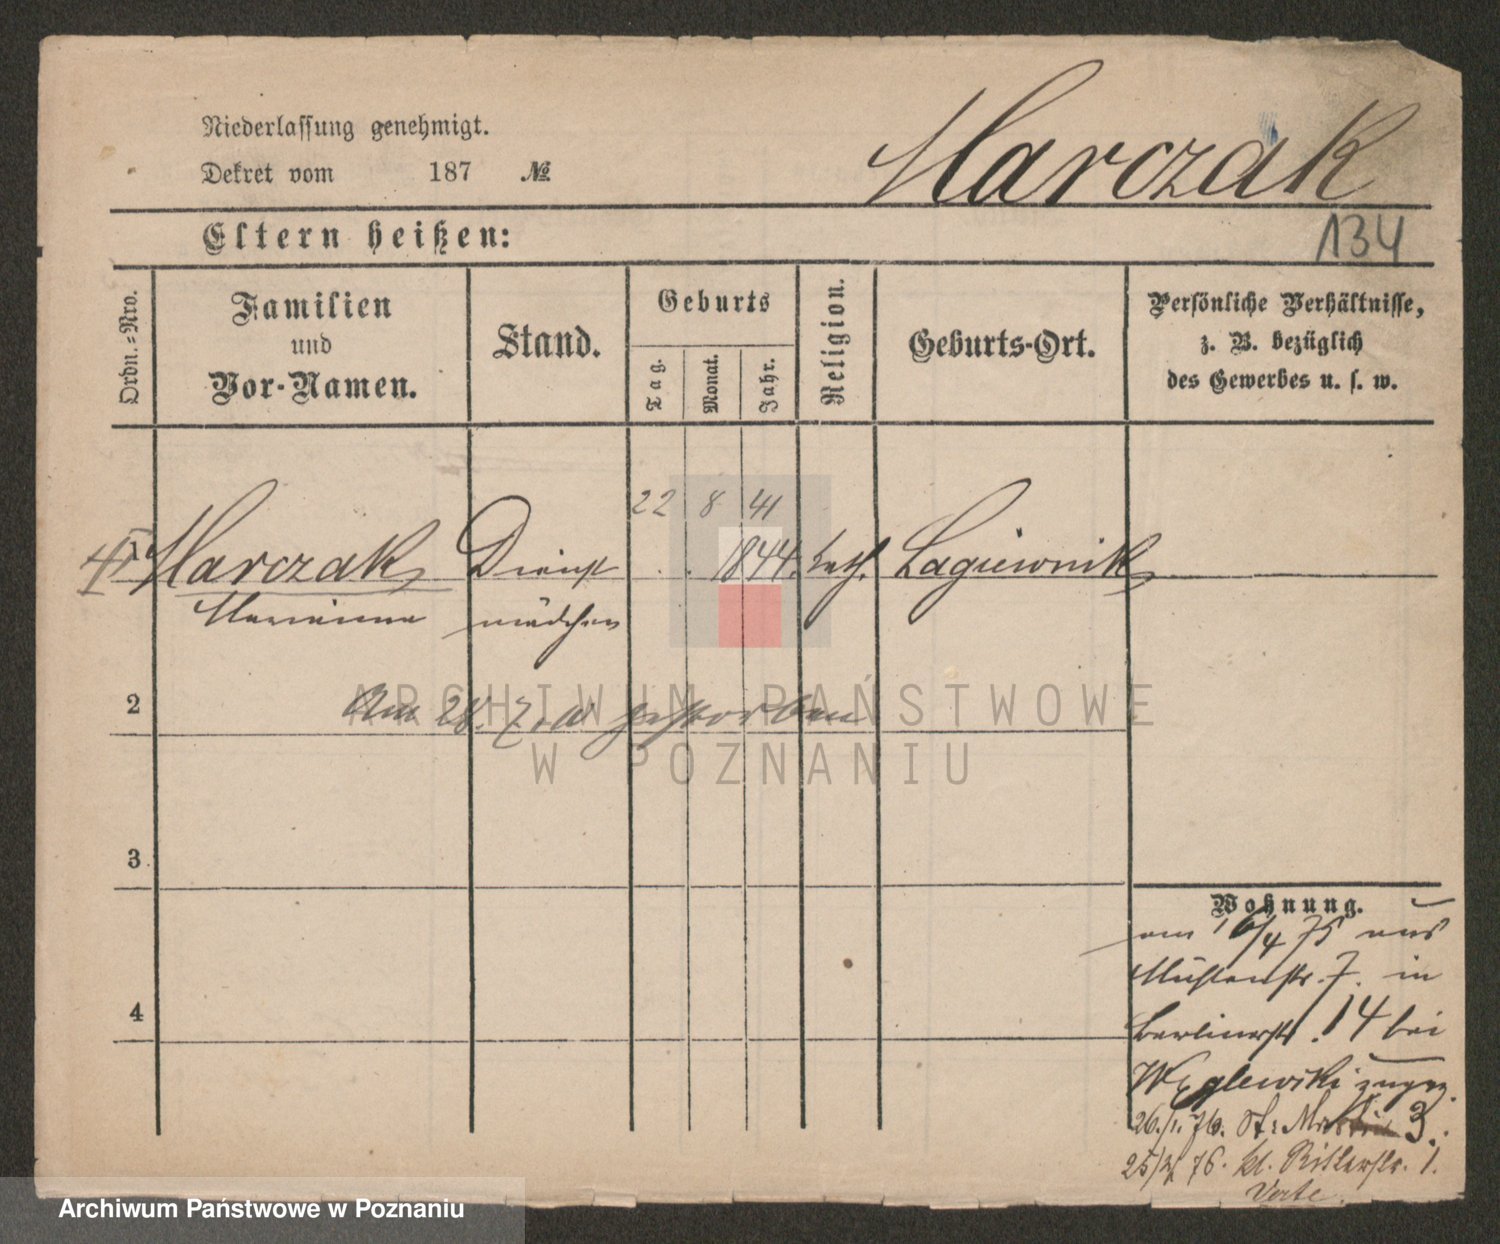 Niederlassung genehmigt.
Dekret vom 187 №
Marczak
134
Eltern heißen:
Ordn.-Nro.
Familien
und
Vor-Namen.
Stand.
Geburts
Tag.
Monat.
Jahr.
Religion.
Geburts-Ort.
Persönliche Verhältnisse,
z. B. bezüglich
des Gewerbes u. s. w.
22 8 41
Marczak Dienst 1844. kath. Lagiewnik
Marianna mädchen
2
Am 28. 7. gestorben
3
Wohnung.
am 16/4 75 aus
Mühlenstr. 7. in
4
Berlinerstr. 14 bei
Węglewski zugez.
26./1. 76. St: Martin 3.
25/4 76. kl. Ritterstr. 1.
Verte.
ARCHIWUM PAŃSTWOWE
W POZNANIU
Archiwum Państwowe w Poznaniu